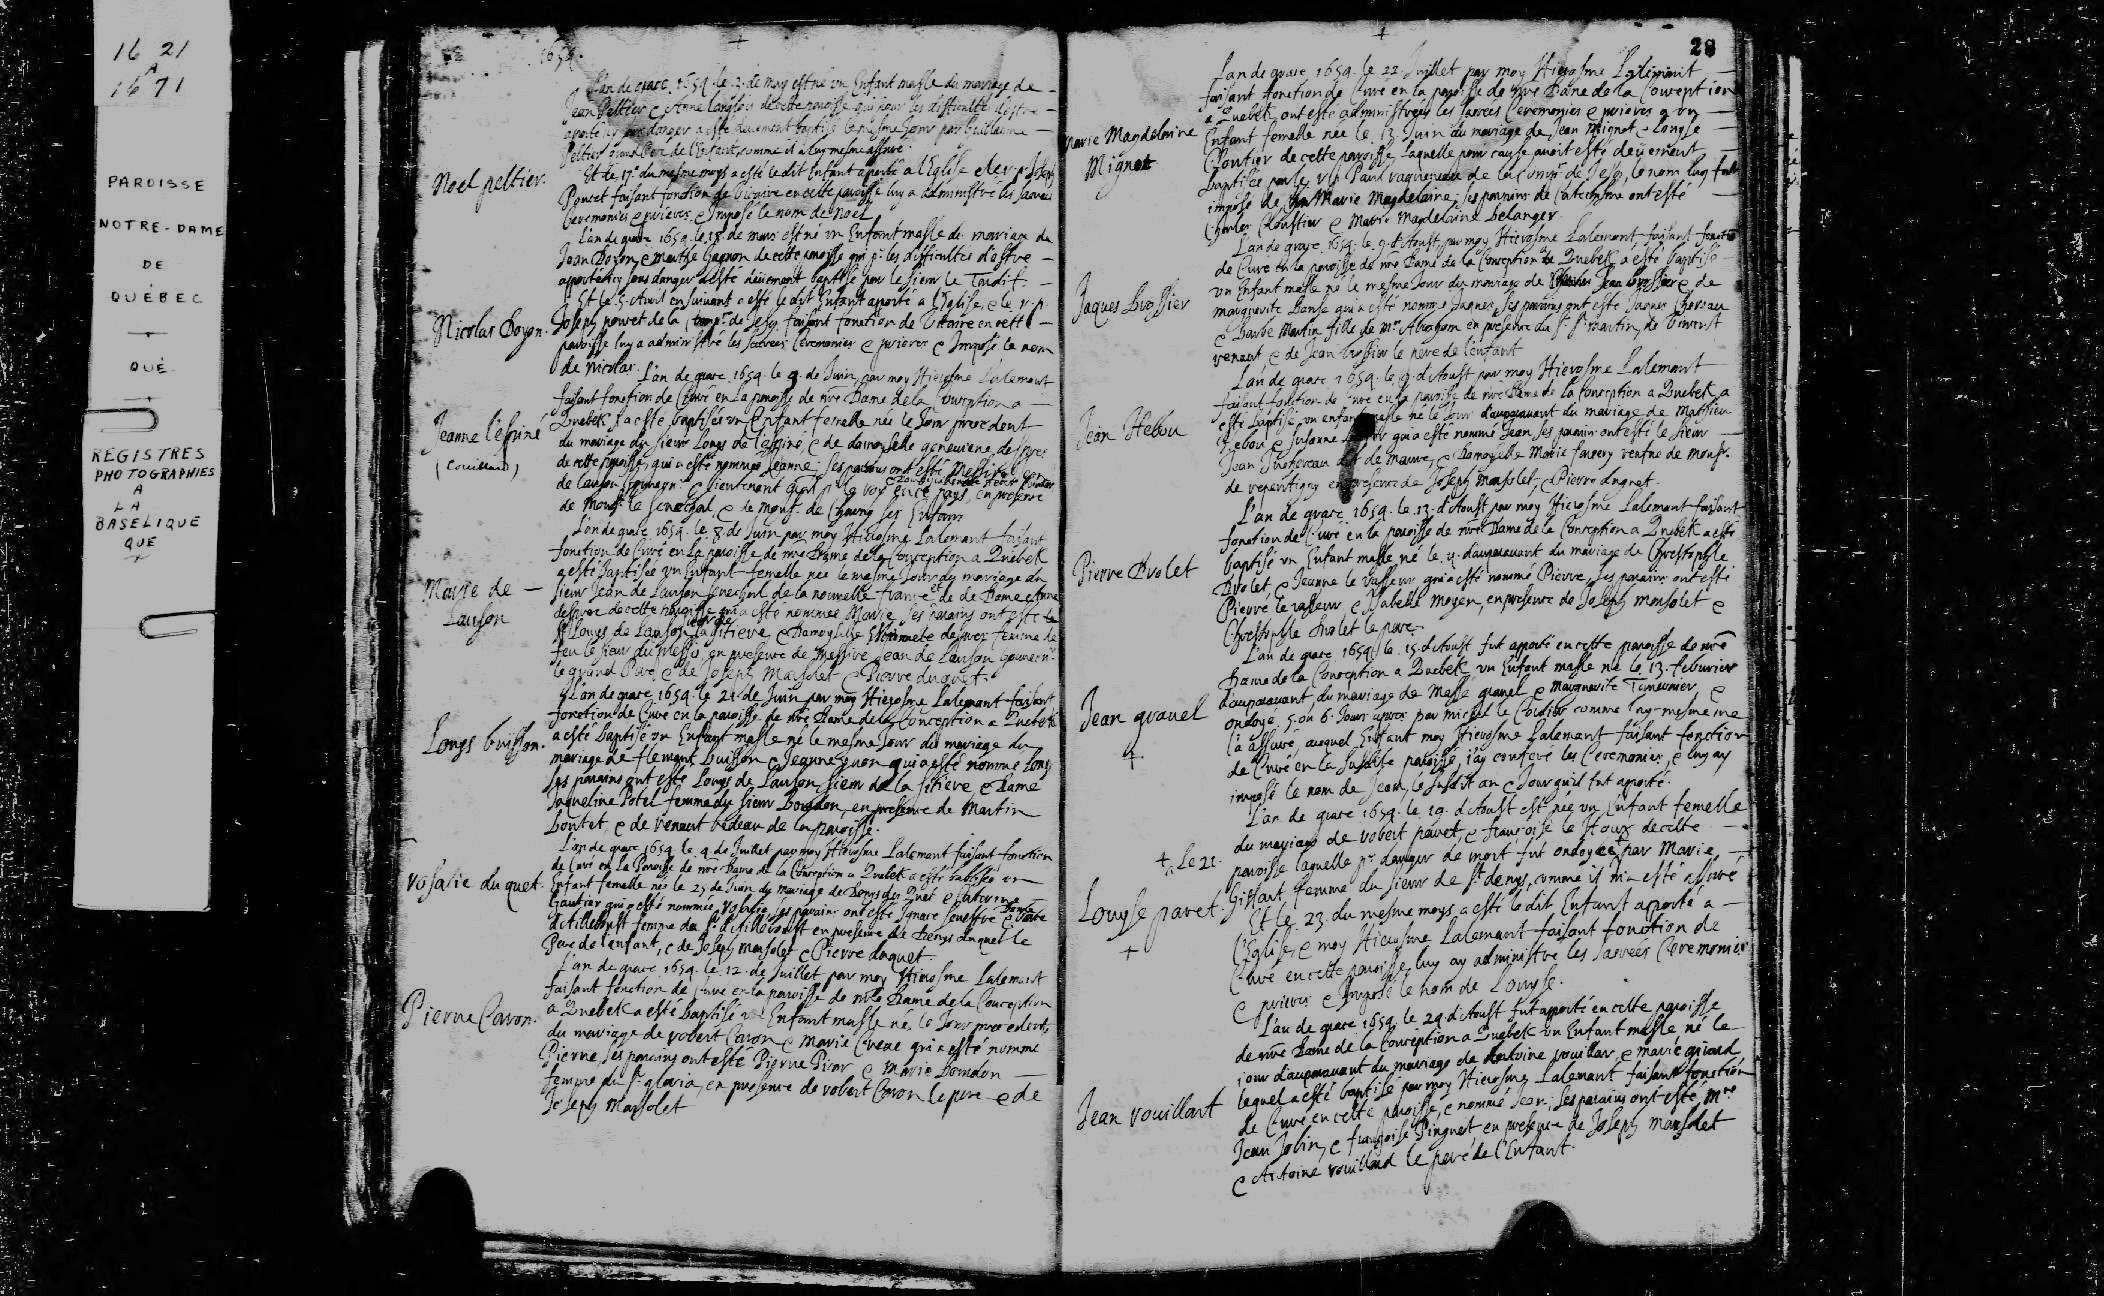 16 21
A
16 71
PAROISSE
NOTRE-DAME
DE
QUÉBEC
QUÉ
REGISTRES
PHOTOGRAPHIES
A
LA
BASELIQUE
QUE
1654
L'an de grace 1654 le 2. de may est né un Enfant masle du mariage de
Jean Peltier & Anne Langlois de cette paroisse qui pour les difficultés d'estre
aporté icy sans danger a esté deuement baptisé le mesme Jour par Guillaume
Peltier grand Pere de l'Enfant, comme il a luy mesme assuré.
Noel peltier.
Et le 17. du mesme moys a esté le dit Enfant aporté a l'Eglise & le r. p. Joseph
Poncet faisant fonction de Vicaire en cette paroisse luy a administré les sacrées
Ceremonies & prieres & Imposé le nom de Noel
L'an de grace 1654. le 18. de mars est né un Enfant masle du mariage de
Jean Doyon & Marthe Gagnon de cette paroisse qui pr. les difficultés d'estre
aporté icy sans danger a esté deuement baptisé par le sieur le Tardif.
Et le 5. Avril ensuivant a esté le dit Enfant aporté a l'Eglise, & le r. p.
Nicolas Doyon.
Joseph poncet de la Comp. de Jesus faisant fonction de Vicaire en cette
paroisse luy a administré les sacrées Ceremonies & prieres & Imposé le nom
de Nicolas.
L'an de grace 1654. le 9. de Juin par moy Hierosme Lalemant
faisant fonction de Cure en la paroisse de nre Dame de la Conception a
Jeanne l'espine
(Couillard)
Quebek a esté baptisée un Enfant femelle née le Jour precedent
du mariage du sieur Louys de l'espiné & de damoyselle genevieve desprez
de cette paroisse, qui a esté nommée Jeanne. ses parains ont esté Messire Jean
de Lauson Gouvern. & lieutenant gnal pr. le roy en ce pays, en presence
de Mons. le Senechal & de Mons. de Charny ses Enfans
L'an de grace 1654. le 8. de Juin par moy Hierosme Lalemant faisant
fonction de Curé en la paroisse de nre Dame de la Conception a Quebek
a esté baptisée un Enfant femelle née le mesme Jour du mariage du
Marie de
Lauson
sieur Jean de Lauson Senechal de la nouvelle france & de Dame Anne
desprez de cette paroisse qui a esté nommée Marie, ses parains ont esté
Louys de Lauson la Sitiere & Damoyselle Estiennete desprez femme de
feu le sieur du plessis en presence de Messire Jean de Lauson Gouvern.
le grand Pere, & de Joseph Massolet & Pierre duquet.
L'an de grace 1654 le 21. de Juin par moy Hierosme Lalemant faisant
fonction de Cure en la paroisse de nre Dame de la Conception a Quebek
Louys buisson.
a esté baptisé un Enfant masle né le mesme Jour du mariage du
mariage de flemant buisson & Jeanne qui a esté nommé Louys
ses parains ont esté Louys de Lauson, sieur de la Sitiere & Dame
Jaqueline Potel femme du sieur Bourdon, en presence de Martin
boutet, & de venant bedeau de la paroisse.
L'an de grace 1654 le 4 de Juillet par moy Hierosme Lalemant faisant fonction
de Curé en la Paroisse de nre Dame de la Conception a Quebek a esté babtisée un
Rosalie duquet.
Enfant femelle née le 25 de Juin du mariage de Denys du Quet & Caterine
Gautier qui a esté nommée Rosalie, ses parains ont esté Ignace Souestre & Dame barbe
d'Aillebout femme du Sr. d'Aillebout en presence de Denys duquet le
Pere de l'enfant, & de Joseph Massolet & Pierre duquet.
L'an de grace 1654. le 12. de Juillet par moy Hierosme Lalemant
faisant fonction de Cure en la paroisse de nre Dame de la Conception
Pierre Caron.
a Quebek a esté baptisé un Enfant masle né le Jour precedent
du mariage de robert Caron & marie Crevet qui a esté nommé
Pierre, ses parains ont esté Pierre Picar & Marie Bourdon
femme du Sr. gloria, en presence de robert Caron le pere & de
Joseph Massolet
28
L'an de grace 1654. le 22. Juillet par moy Hierosme Lalemant
faisant fonction de Cure en la paroisse de nre Dame de la Conception
a Quebek ont esté administrées les sacrées Ceremonies & prieres a un
Marie Magdeleine
Mignot
Enfant femelle née le 13. Juin du mariage de Jean Mignot & Louyse
Cloutier de cette paroisse, laquelle pour cause avoit esté deuement
baptisée par le r. p. Paul ragueneau de la Comp. de Jesus, le nom luy fut
imposé de Marie Magdelaine; ses parains de Catechisme ont esté
Charles Cloustier & Marie Magdelaine belanger.
L'an de grace 1654. le 9. d'Aoust par moy Hierosme Lalemant faisant fonction
de Cure en la paroisse de nre Dame de la Conception a Quebek a esté baptisé
Jaques brossier
un Enfant masle né le mesme Jour du mariage de Jean brossier & de
marguerite Banse qui a esté nommé Jaques, ses parains ont esté Jaques
& barbe Martin fille de Mr. Abraham en presence du Sr. St. martin, de Vincent
renaut & de Jean brossier le pere de l'enfant
L'an de grace 1654. le 9. d'Aoust par moy Hierosme Lalemant
faisant fonction de Cure en la paroisse de nre Dame de la Conception a Quebek a
Jean Hebou
esté baptisé un enfant masle né le Jour d'auparavant du mariage de Mathieu
hebou & Susanne qui a esté nommé Jean ses parains ont esté le sieur
Jean Juchereau de maure, & Damoyselle Marie favery veufve de mons.
de repentigny en presence de Joseph massolet, & Pierre duquet.
L'an de grace 1654. le 13. d'Aoust par moy Hierosme Lalemant faisant
fonction de Curé en la paroisse de nre Dame de la Conception a Quebek a esté
Pierre Drolet
baptisé un Enfant masle né le 4. d'auparavant du mariage de Christophle
Drolet & Jeanne le Vasseur qui a esté nommé Pierre, ses parains ont esté
Pierre le vasseur & Isabelle moyen, en presence de Joseph Massolet &
Christophle drolet le pere.
L'an de grace 1654. le 15. d'Aoust fut aporté en cette paroisse de nre
Dame de la Conception a Quebek un Enfant masle né le 13. febvrier
Jean gravel
+
d'auparavant, du mariage de Massé gravel & Marguerite Tavernier, &
ondoyé 5. ou 6. Jours apres par michel le Cordier comme luy-mesme me
l'a assuré, auquel Enfant moy Hierosme Lalemant faisant fonction
de Curé en la susdite paroisse, j'ay conferé les Ceremonies, & luy ay
imposé le nom de Jean, le susdit an & Jour qu'il fut aporté.
L'an de grace 1654. le 19. d'Aoust est née un Enfant femelle
du mariage de robert paret & françoise le Houx de cette
+. Le 21.
paroisse laquelle pr. danger de mort fut ondoyée par Marie
Louyse paret.
+
Giffart, femme du sieur de St. denys, comme il m'a esté assuré
Et le 23. du mesme moys a esté le dit Enfant apporté a
l'Eglise, & moy Hierosme Lalemant faisant fonction de
Curé en cette paroisse luy ay administré les sacrées Ceremonies
& prieres & Imposé le nom de Louyse.
L'an de grace 1654. le 29. d'Aoust fut apporté en cette paroisse
de nre Dame de la Conception a Quebek un Enfant masle né le
jour d'auparavant du mariage de Antoine rouillar & marie girard
Jean rouillart
lequel a esté baptisé par moy Hierosme Lalemant faisant fonction
de Cure en cette paroisse, & nommé Jean; ses parains ont esté, Mre.
Jean Jobin, & françoise Pinguet en presence de Joseph massolet
& Antoine rouillard le pere de l'Enfant.